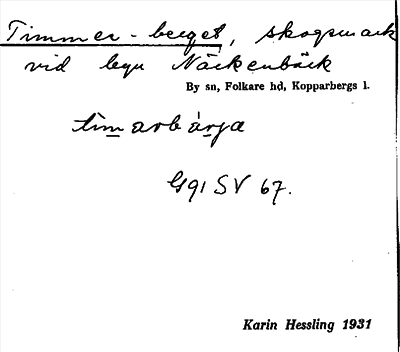 Timmer-berget, skogsmark
vid byn Näckenbäck
By sn, Folkare hd, Kopparbergs l.
timərbärja
G91 SV 67.
Karin Hessling 1931